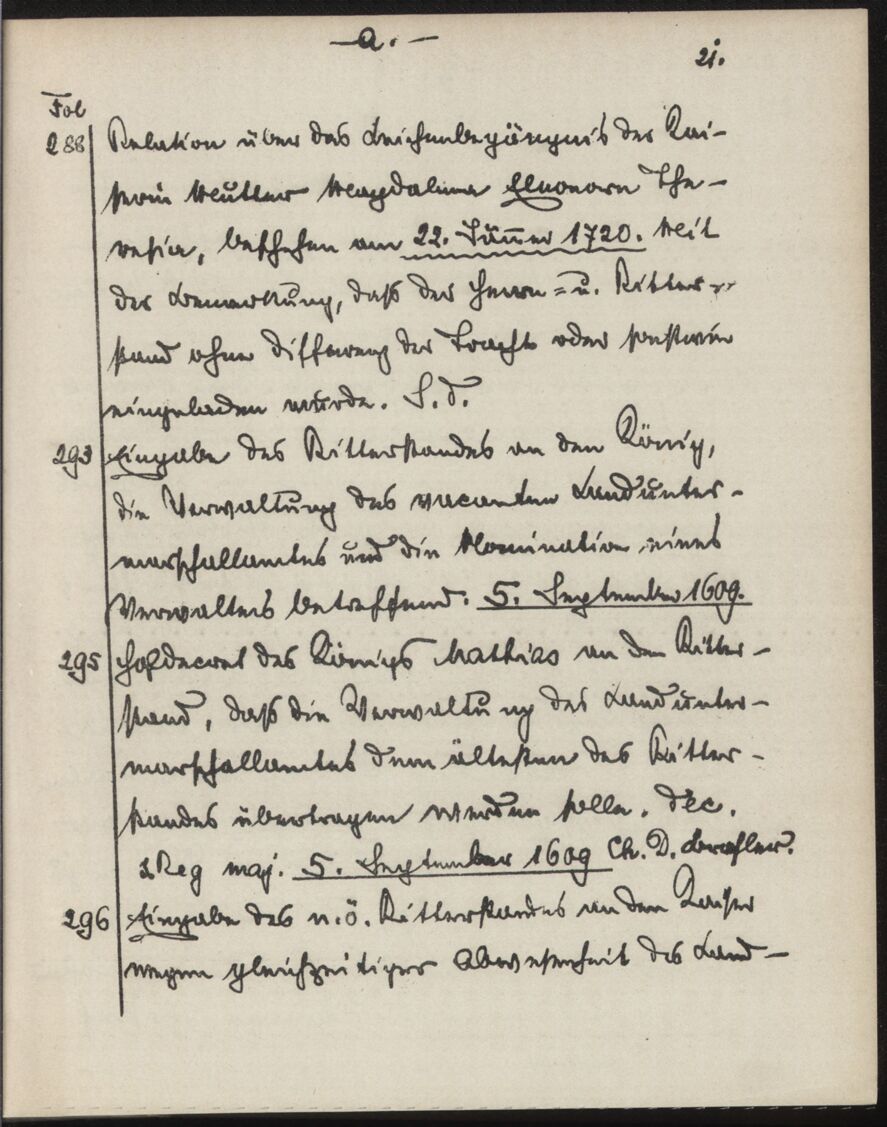 —a.—
21.
Fol
288 Relation über das Leichenbegängnis der Kai-
serin Mutter Magdalena Eleonora The-
resia, beschehen am 22. Jänner 1720. Mit
der Bemerkung, daß der Herrn- u. Ritter-
stand ohne Differenz der Tracht oder sonstwie
eingeladen wurde. S. d.
293 Eingabe des Ritterstandes an den König,
die Verwaltung des vacanten Landunter-
marschallamtes und die Nomination eines
Verwalters betreffend. 5. September 1609.
295 Hofdecret des Königs Mathias an den Ritter-
stand, daß die Verwaltung des Landunter-
marschallamtes dem ältesten des Ritter-
standes übertragen werden solle. Dec.
Reg maj. 5. September 1609 Ch. D.
296 Eingabe des n.ö. Ritterstandes an den Kaiser
wegen gleichzeitiger Abwesenheit des Land-